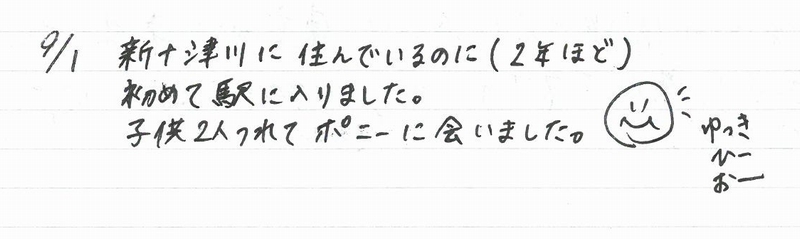 9/1 新十津川に住んでいるのに(2年ほど)
初めて駅に入りました。
子供2人つれてポニーに会いました。
ゆっき
ひー
おー